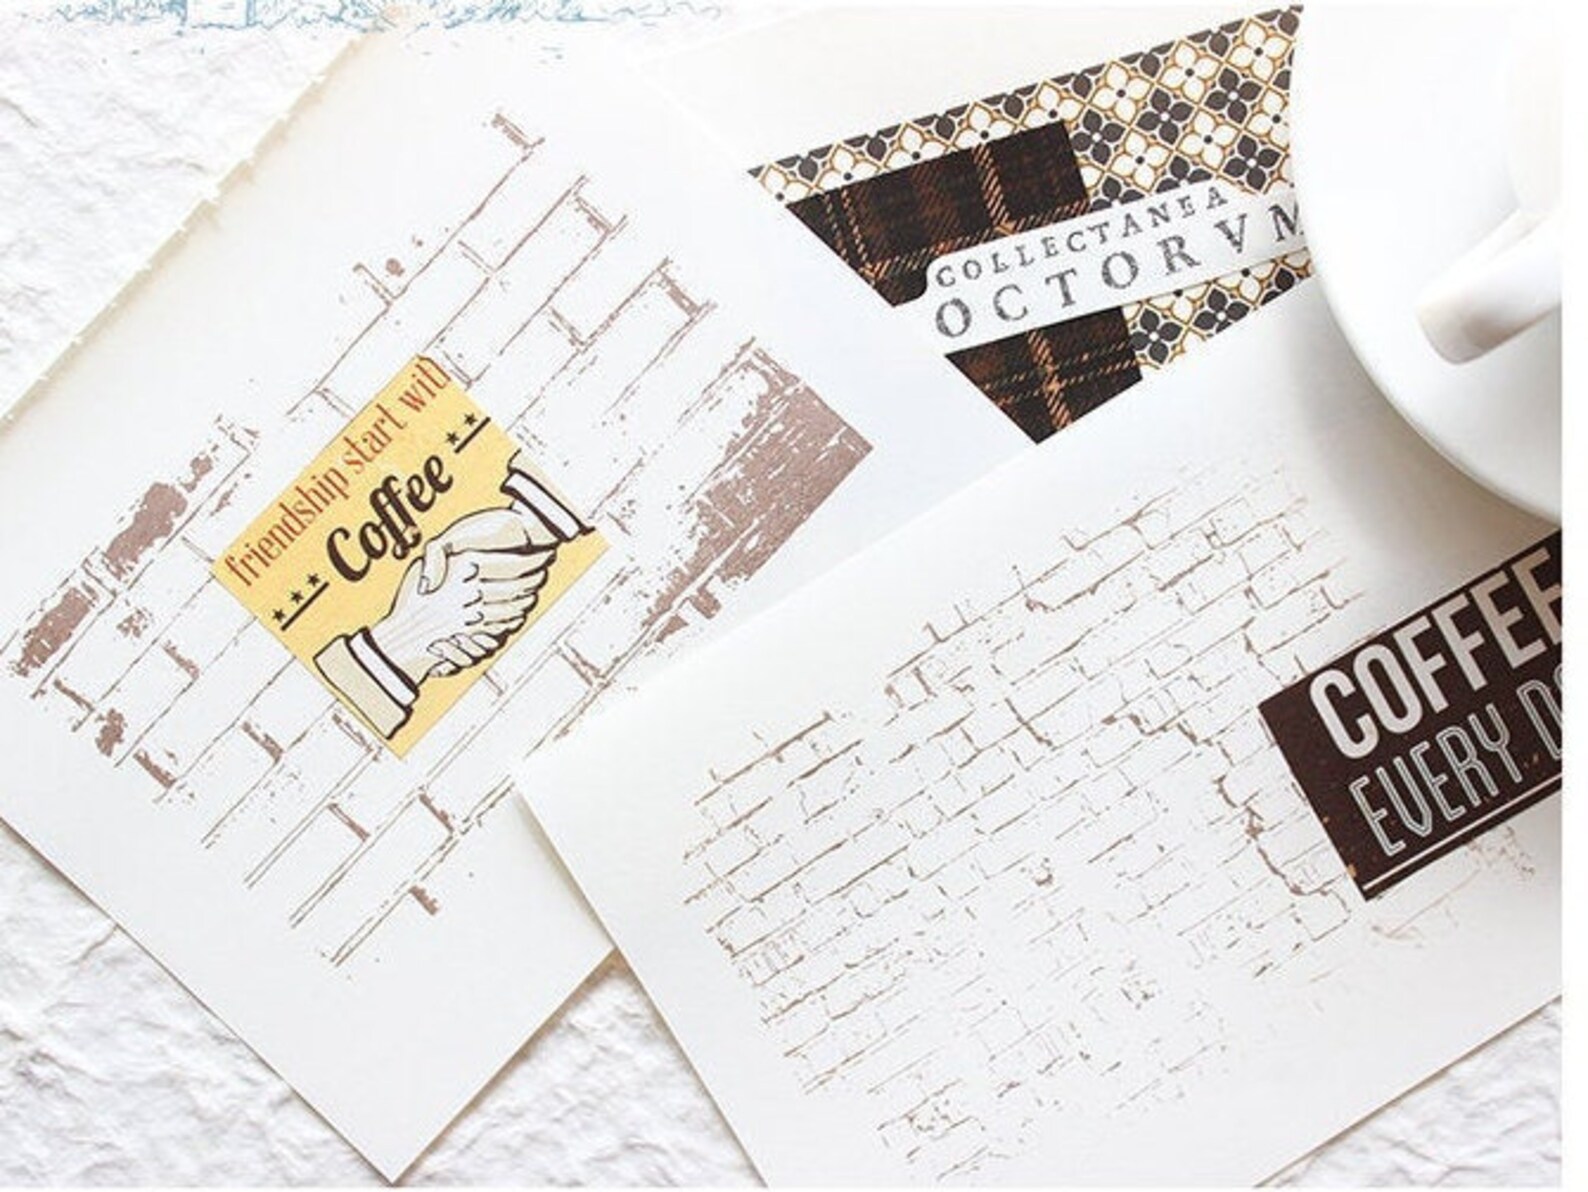 friendship start with
Coffee
COLLECTANEA
OCTORVM
COFFEE
EVERY